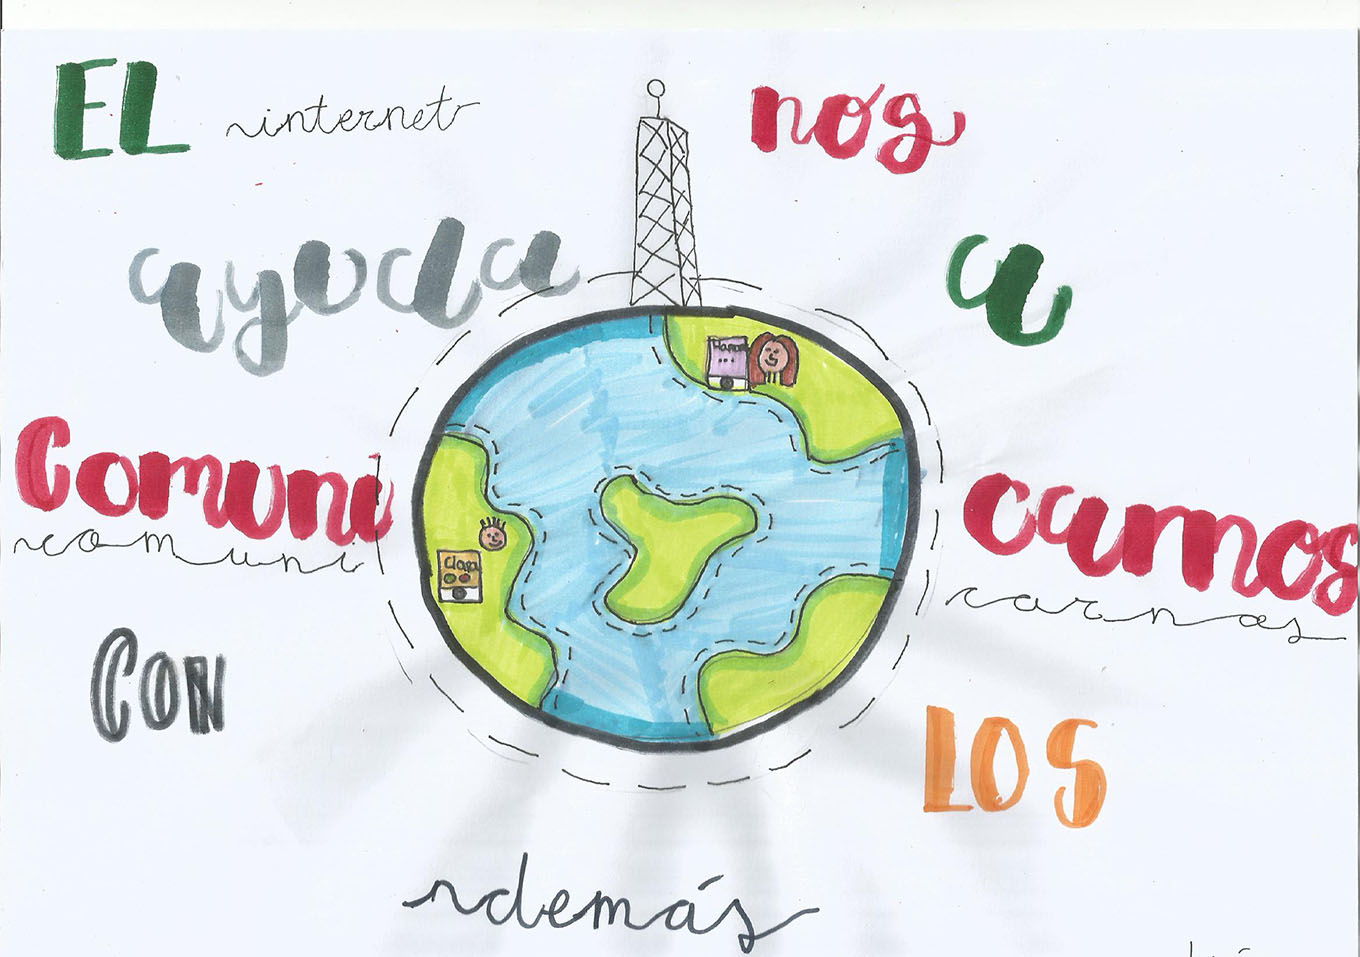 EL internet nos
ayuda a
Comuni carnos
comuni carnos
CON LOS
demás